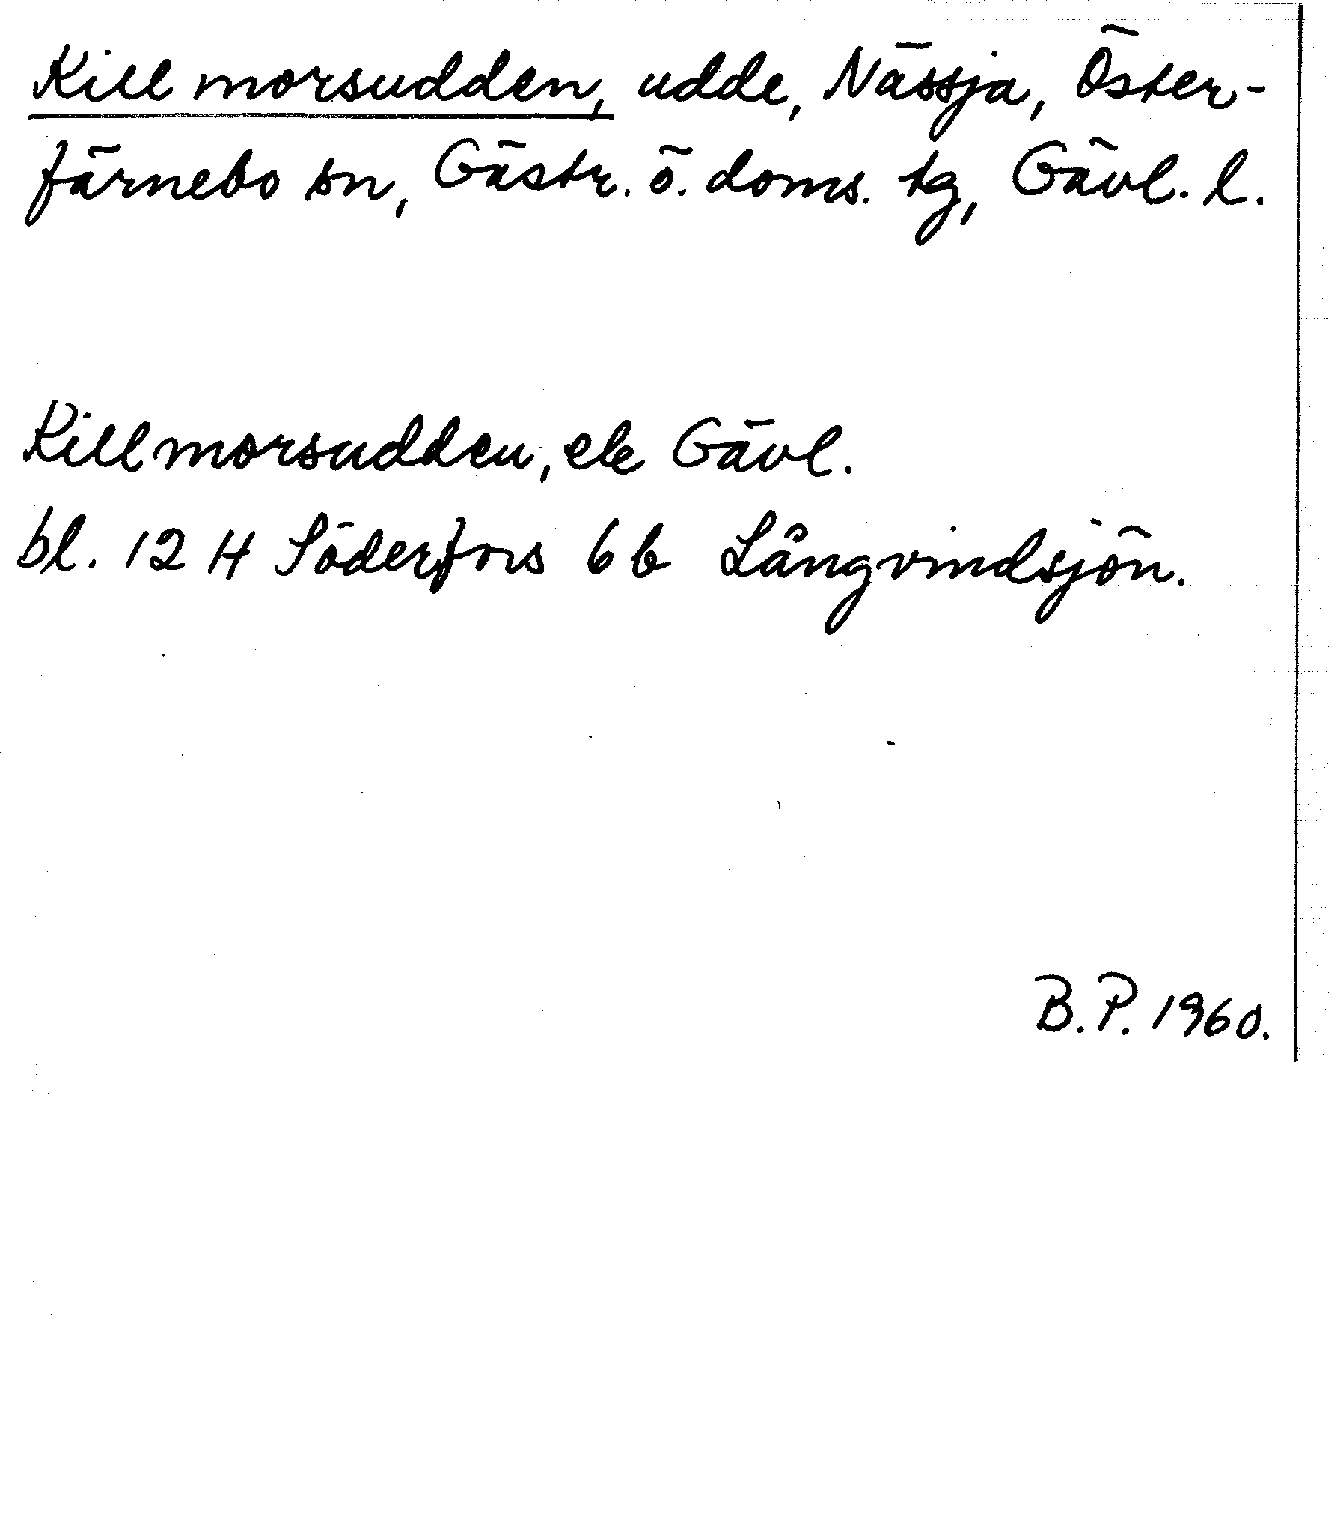 Killmorsudden, udde, Nässja, Öster-
färnebo sn, Gästr. ö. doms. tg, Gävl. l.
Killmorsudden, ek Gävl.
bl. 12 H Söderfors 6 b Långvindsjön.
B.P. 1960.